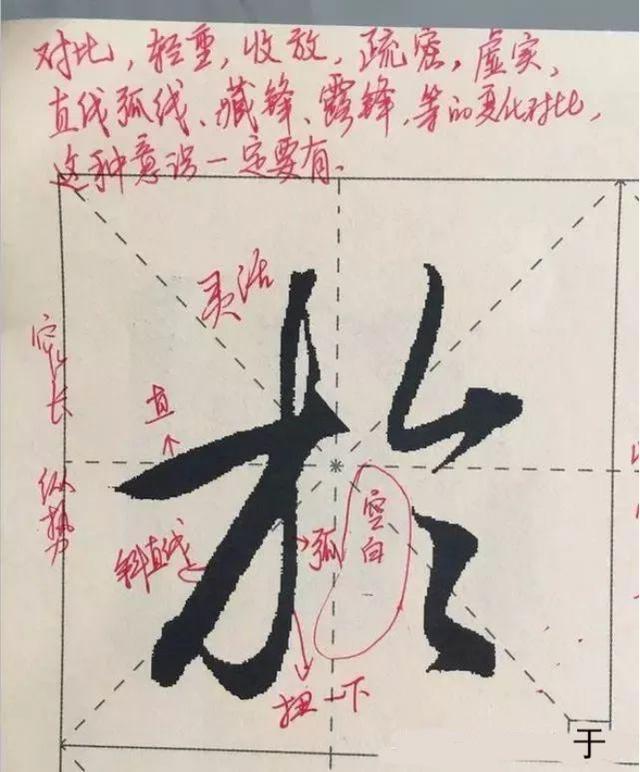 对比，轻重，收放，疏密，虚实，
直线弧线、藏锋、露锋，等的变化对比，
这种意识一定要有。
灵活
窄长
纵势
直
斜直线
弧
空白
扭一下
於
于